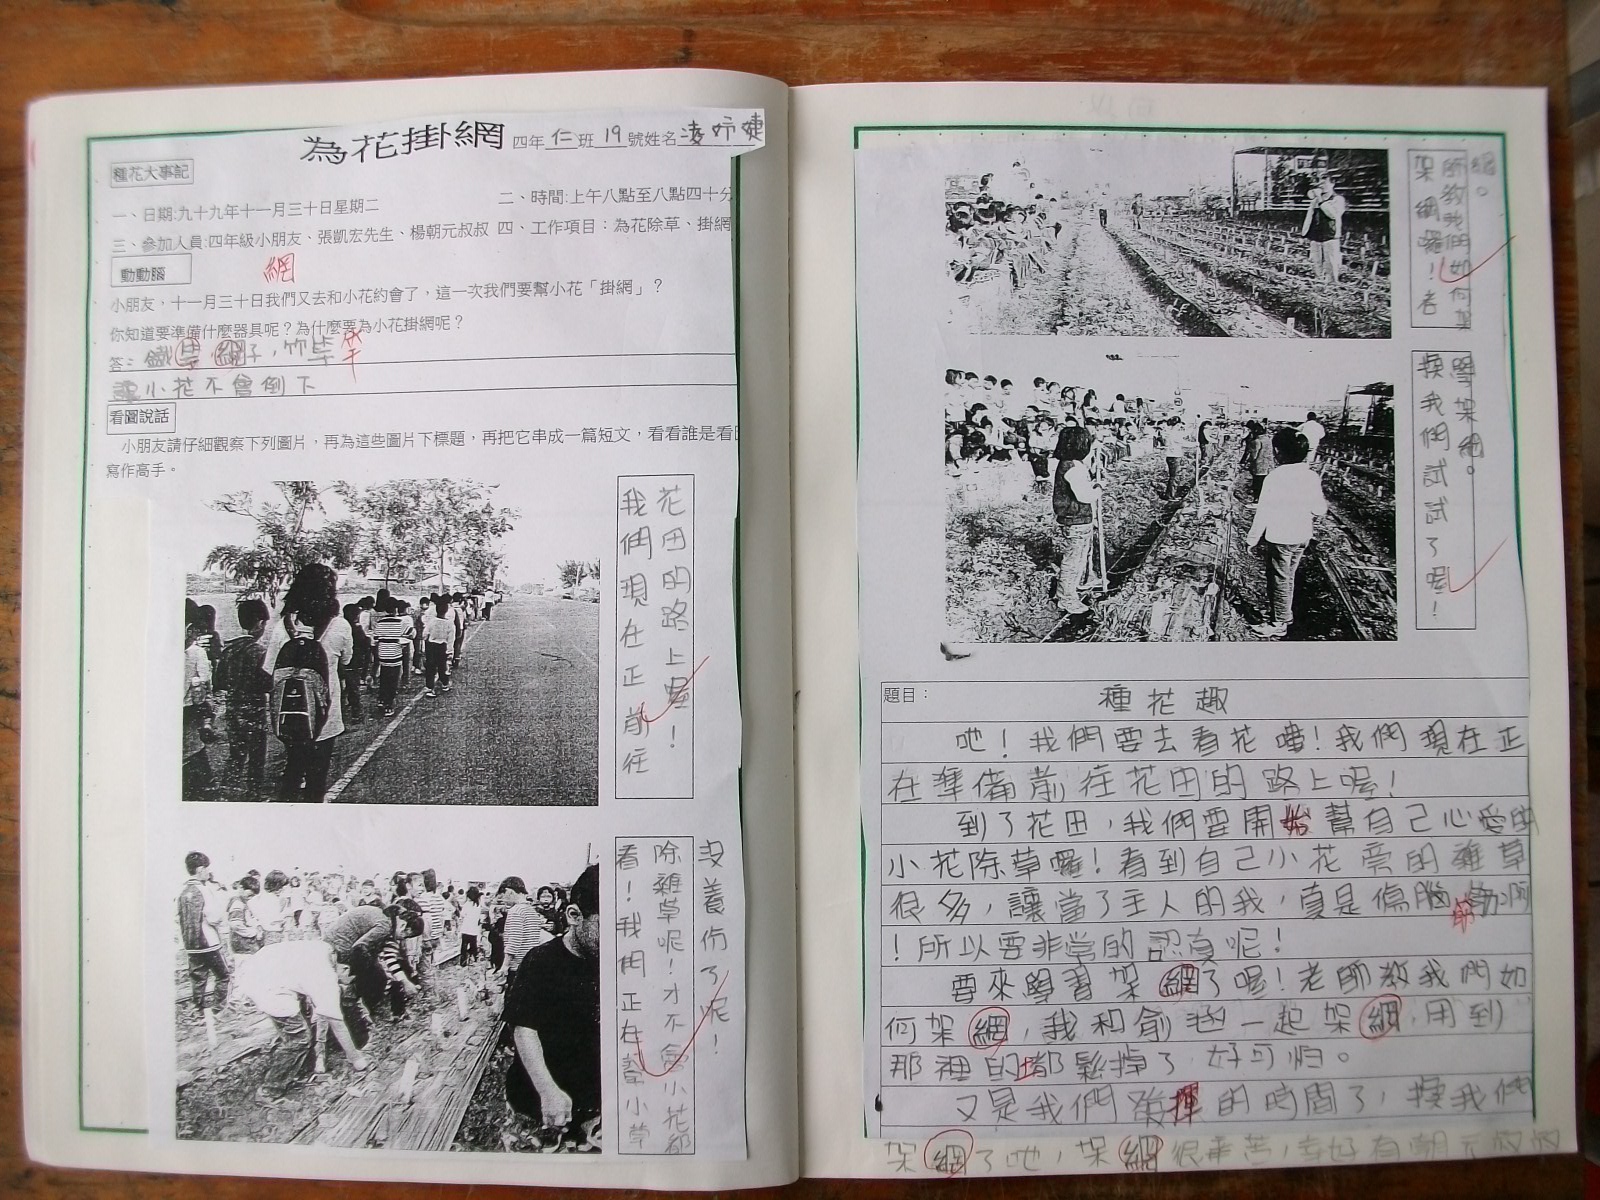 為花掛網 四年仁班19號姓名凌妤婕
種花大事記
一、日期:九十九年十一月三十日星期二 二、時間:上午八點至八點四十分
三、參加人員:四年級小朋友、張凱宏先生、楊朝元叔叔 四、工作項目：為花除草、掛網
動動腦
網
小朋友，十一月三十日我們又去和小花約會了，這一次我們要幫小花「掛網」？
你知道要準備什麼器具呢？為什麼要為小花掛網呢？
答： 網子，竹
讓小花不會倒下
看圖說話
小朋友請仔細觀察下列圖片，再為這些圖片下標題，再把它串成一篇短文，看看誰是看
寫作高手。
我們現在正前往
花田的路上喔！
看！我們正在幫小草
除雜草呢！才不會小花都
沒養份了呢！
架網囉！老
師教我們如何架
網。
換我們試試了喔！
學架網。
題目： 種花趣
吔！我們要去看花嘍！我們現在正
在準備前往花田的路上喔！
到了花田，我們要開始幫自己心愛的
小花除草囉！看到自己小花旁的雜草
很多，讓當了主人的我，真是傷腦筋啊
！所以要非常的認真呢！
要來學習架網了喔！老師教我們如
何架網，我和俞涵一起架網，用到
那裡的都鬆掉了，好可怕。
又是我們發揮的時間了，換我們
架網了吔，架網很辛苦，幸好有朝元叔叔